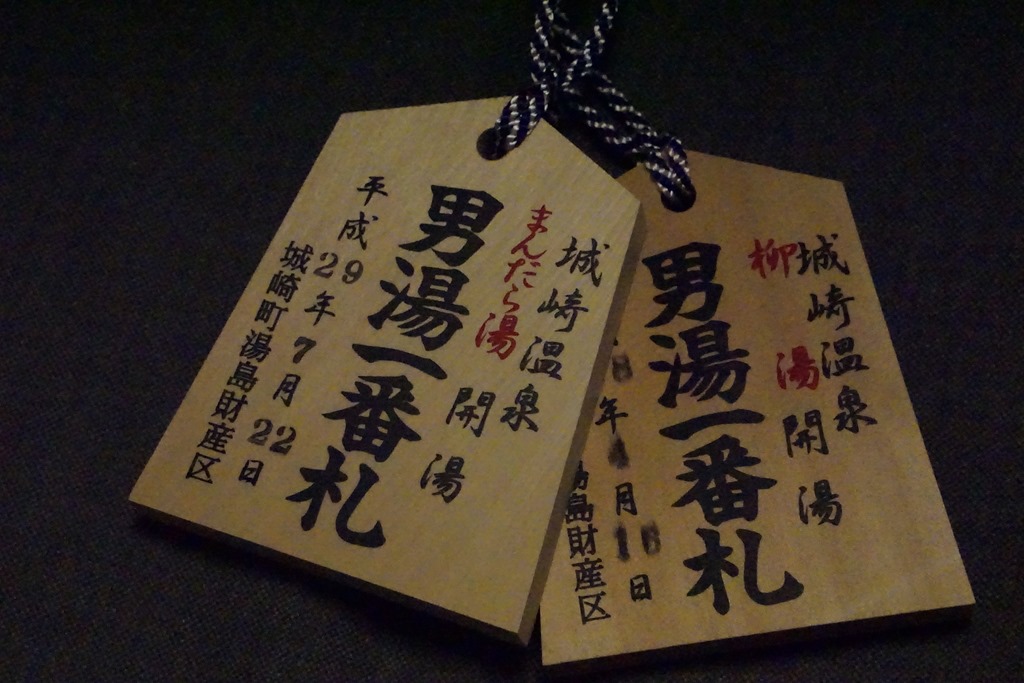 城崎温泉
まんだら湯 開湯
男湯一番札
平成29年7月22日
城崎町湯島財産区
城崎温泉
柳湯 開湯
男湯一番札
年 月 日
島財産区